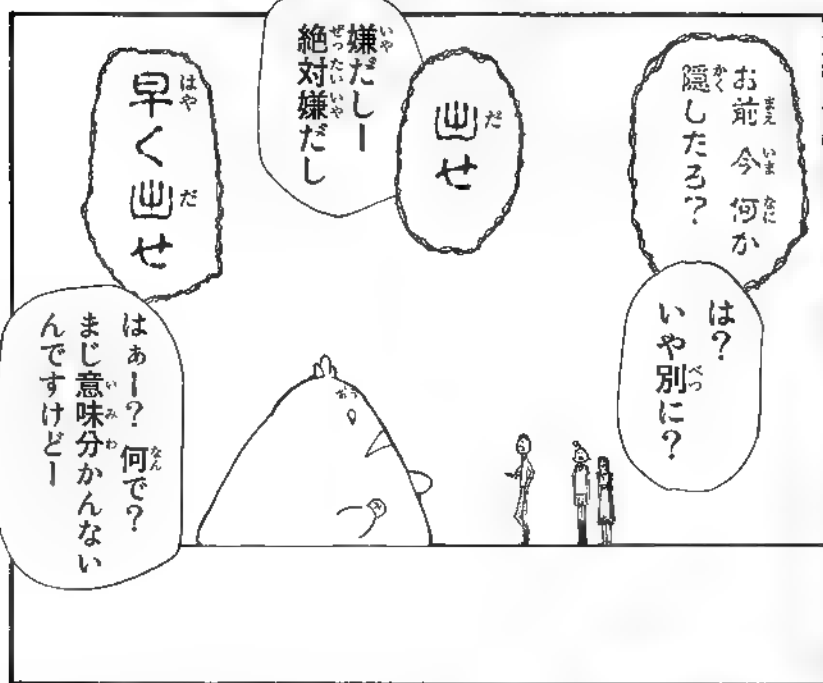 お前今何か
隠したろ？
は？
いや別に？
出せ
嫌だしー
絶対嫌だし
早く出せ
はぁー？何で？
まじ意味分かんない
んですけどー